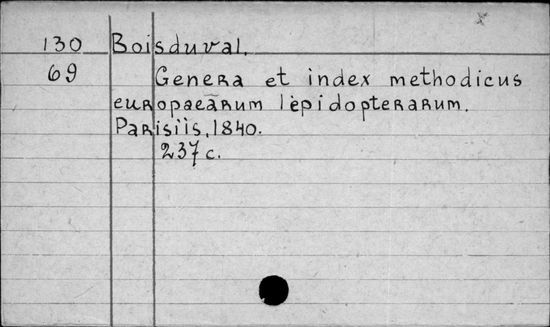 130 Boisduval.
69 Genera et index methodicus
europaearum lepidopterarum.
Parisiis, 1840.
237 c.